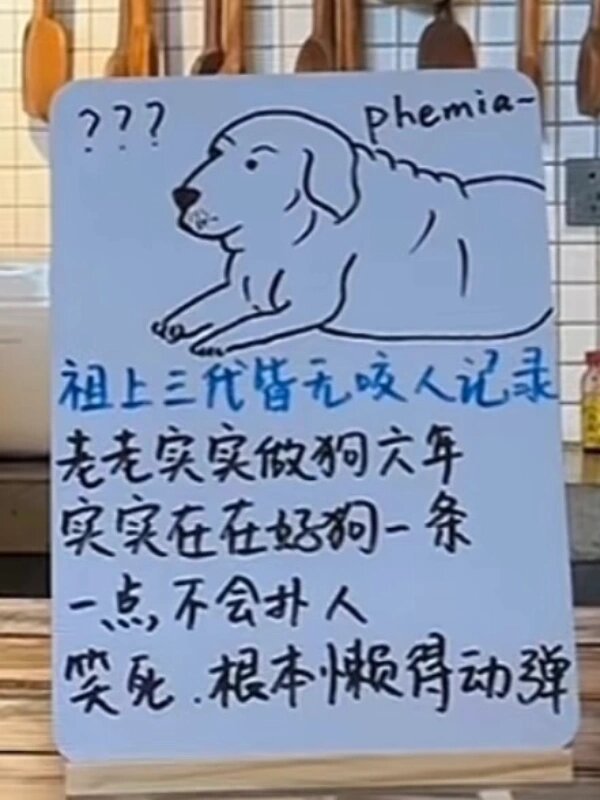 ???
phemia~
祖上三代皆无咬人记录
老老实实做狗六年
实实在在好狗一条
一点,不会扑人
笑死.根本懒得动弹